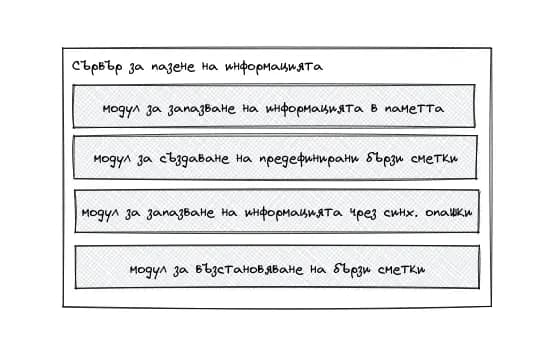 Сървър за пазене на информацията
модул за запазване на информацията в паметта
модул за създаване на предефинирани бързи сметки
модул за запазване на информацията чрез синх. опашки
модул за възстановяване на бързи сметки